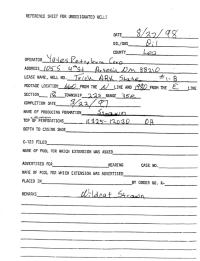 REFERENCE SHEET FOR UNDESIGNATED WELLS
DATE 8/27/98
OIL/GAS Oil
COUNTY Lea
OPERATOR Yates Petroleum Corp
ADDRESS 105 S 4th St Artesia NM 88210
LEASE NAME, WELL NO. ARK State # 1-B
FOOTAGE LOCATION 660 FROM THE N LINE AND 1980 FROM THE E LINE
SECTION 18 TOWNSHIP 22S RANGE 35E
COMPLETION DATE 8/22/97
NAME OF PRODUCING FORMATION Strawn
TOP OF PERFORATIONS OA
DEPTH TO CASING SHOE
C-123 FILED
NAME OF POOL FOR WHICH EXTENSION WAS ASKED
ADVERTISED FOR HEARING CASE NO.
NAME OF POOL FOR WHICH EXTENSION WAS ADVERTISED
PLACED IN BY ORDER NO. R-
REMARKS Wildcat Strawn